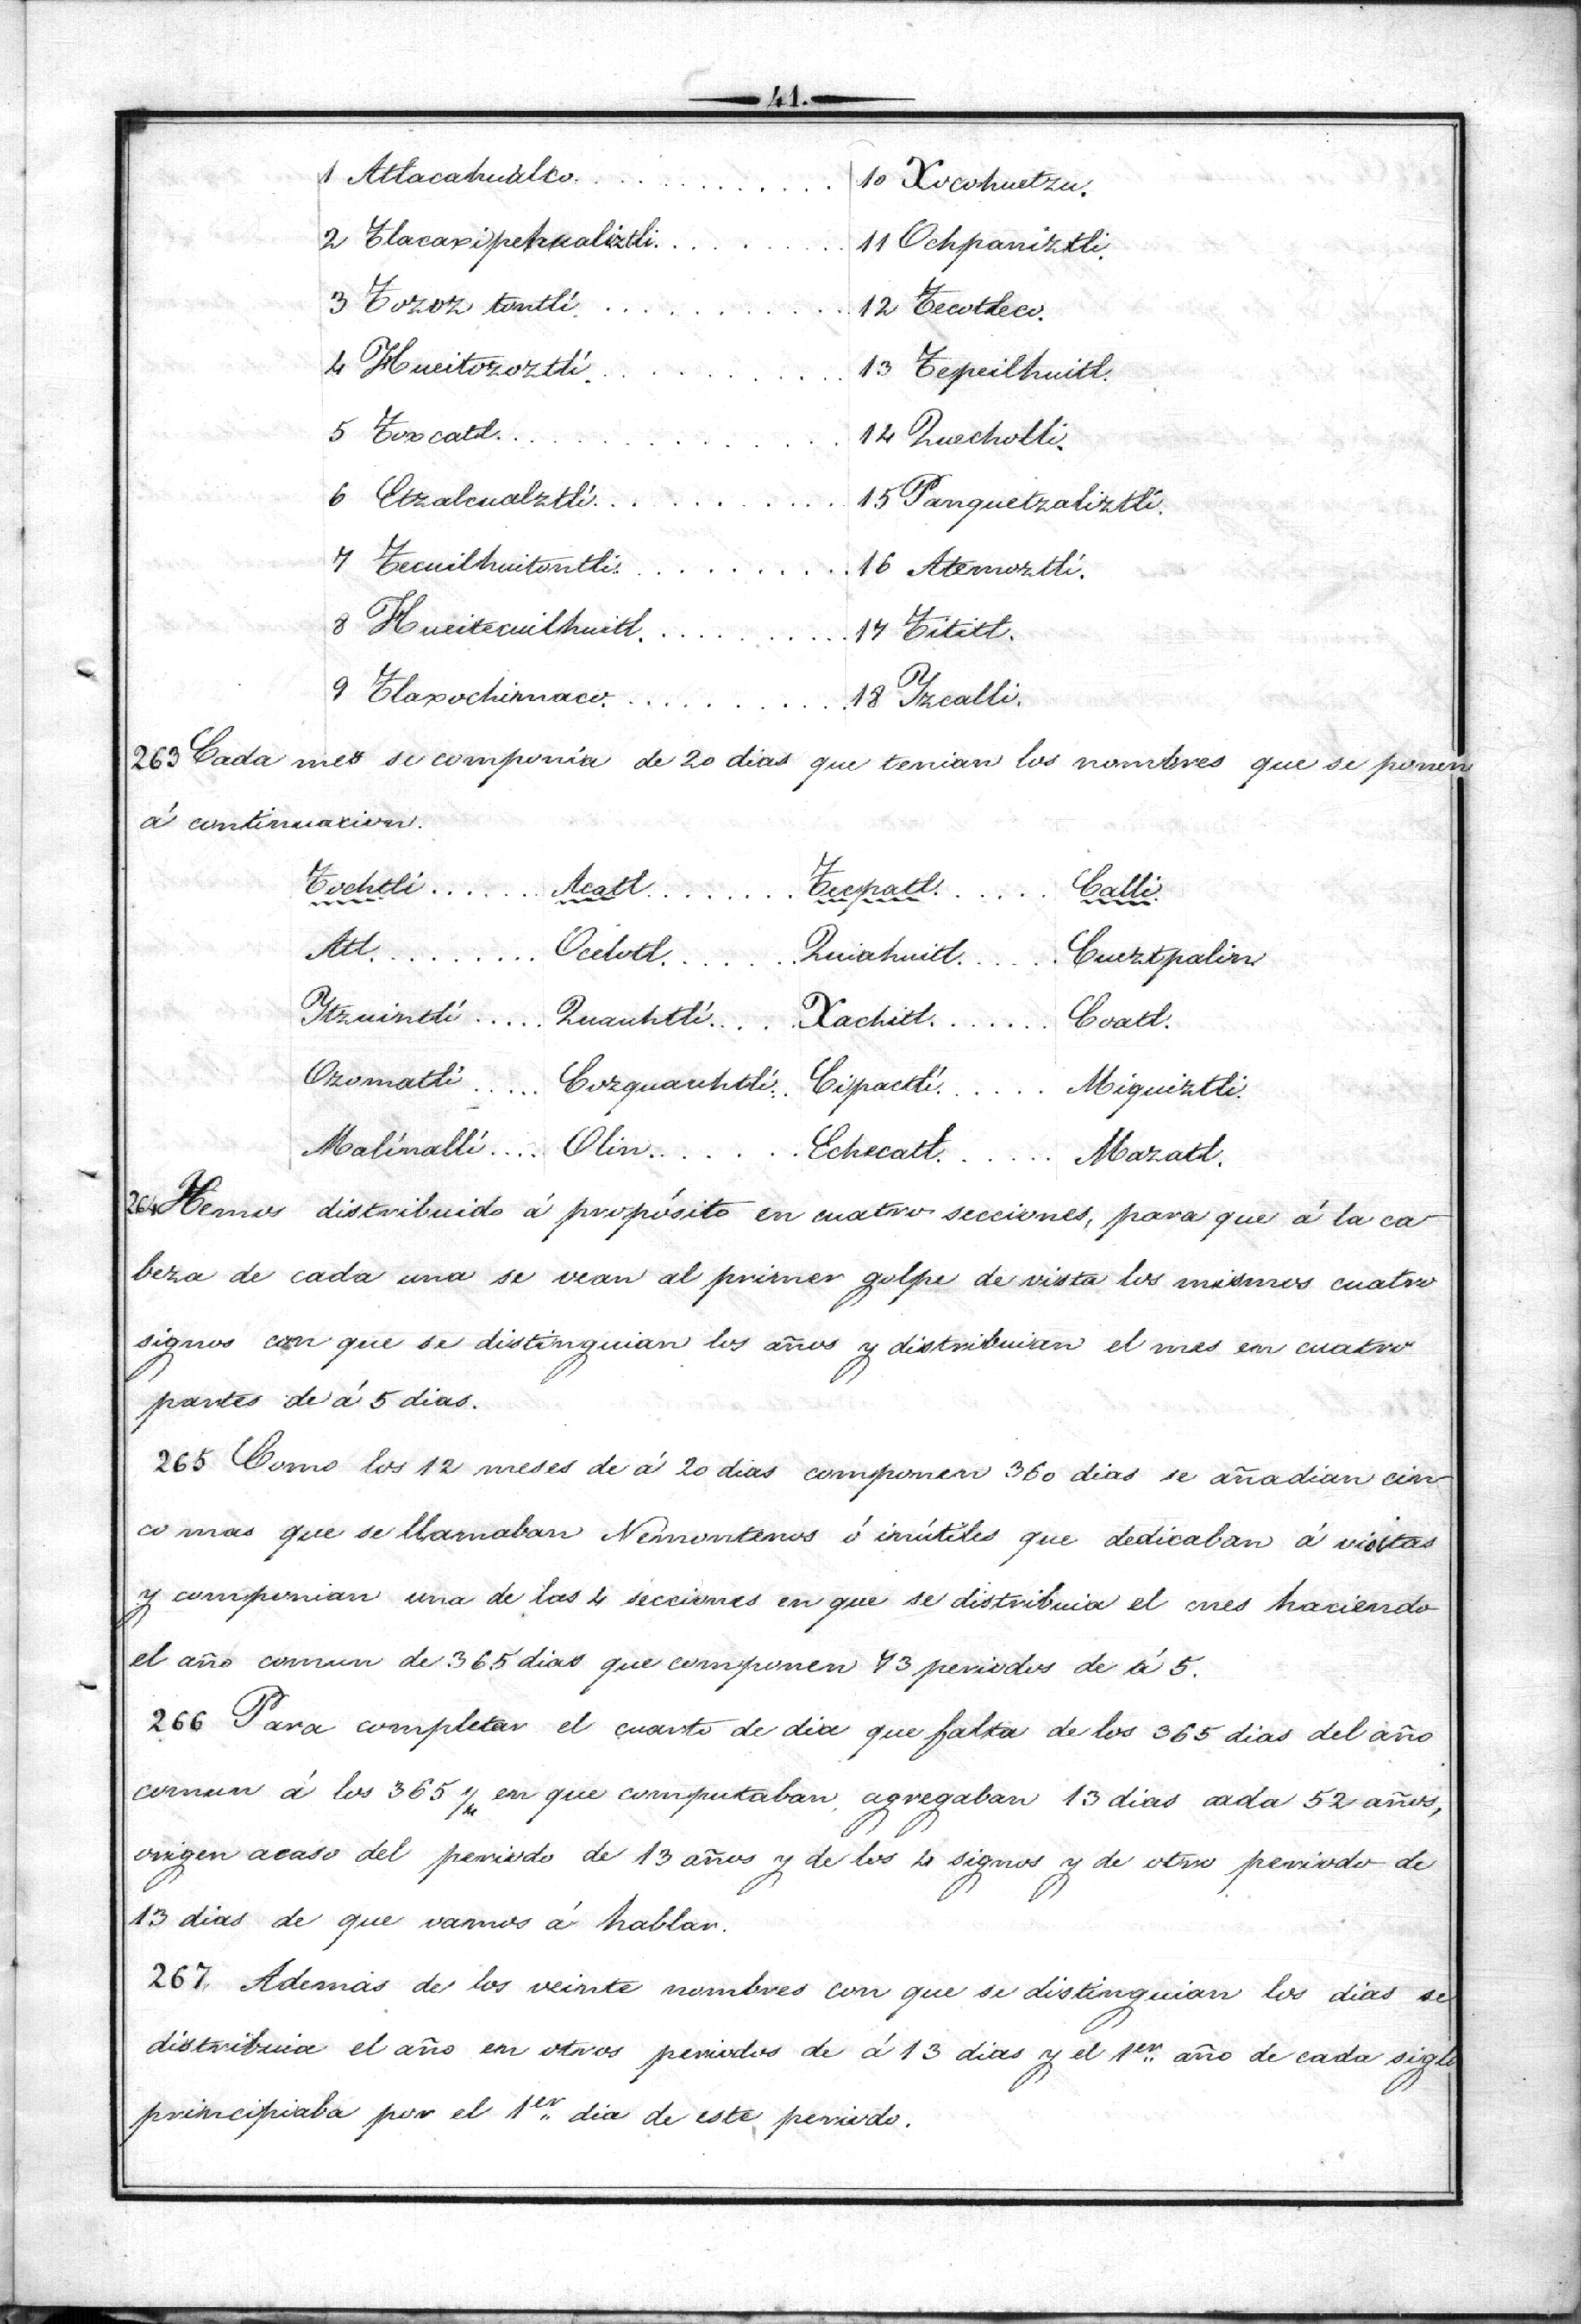 41.
1 Atlacahualco. . . . . . . . . . . . . 10 Xocohuetzu.
2 Tlacaxipehualiztli. . . . . . . . 11 Ochpaniztli.
3 Tozoz tontli. . . . . . . . . . . . 12 Tecotleco.
4 Hueitozoztli. . . . . . . . . . . . 13 Tepeilhuitl.
5 Toxcatl. . . . . . . . . . . . . . . 14 Quecholli.
6 Etzalcualztli. . . . . . . . . . . 15 Panquetzaliztli.
7 Tecuilhuitontli. . . . . . . . . . 16 Atemoztli.
8 Hueitecuilhuitl. . . . . . . . . . 17 Tititl.
9 Tlaxochimaco. . . . . . . . . . . 18 Yzcalli.
263 Cada mes se componía de 20 dias que tenian los nombres que se ponen
á continuacion.
Tochtli . . . . . . Acatl . . . . . . . . Tecpatl. . . . . . Calli.
Atl. . . . . . . . . Ocelotl. . . . . . . Quiahuitl. . . . . . Cueztpalin
Ytzuintli . . . . . Quauhtli. . . . Xachitl. . . . . . . Coatl.
Ozomatli . . . . . Cozquauhtli. . Cipactli. . . . . . Miquiztli.
Malinalli . . . . Olin. . . . . . . Echecatl. . . . . . Mazatl.
264 Hemos distribuido á propósito en cuatro secciones, para que á la ca-
beza de cada una se vean al primer golpe de vista los mismos cuatro
signos con que se distinguian los años y distribuian el mes en cuatro
partes de á 5 dias.
265 Como los 12 meses de á 20 dias componen 360 dias se añadian cin-
co mas que se llamaban Nemontenos ó inútiles que dedicaban á visitas
y componian una de las 4 secciones en que se distribuia el mes haciendo
el año comun de 365 dias que componen 73 periodos de á 5.
266 Para completar el cuarto de dia que falta de los 365 dias del año
comun á los 365 1/4 en que computaban, agregaban 13 dias cada 52 años,
origen acaso del periodo de 13 años y de los 4 signos y de otro periodo de
13 dias de que vamos á hablar.
267. Además de los veinte nombres con que se distinguian los dias se
distribuia el año en otros periodos de á 13 dias y el 1er. año de cada siglo
principiaba por el 1er. dia de este periodo.